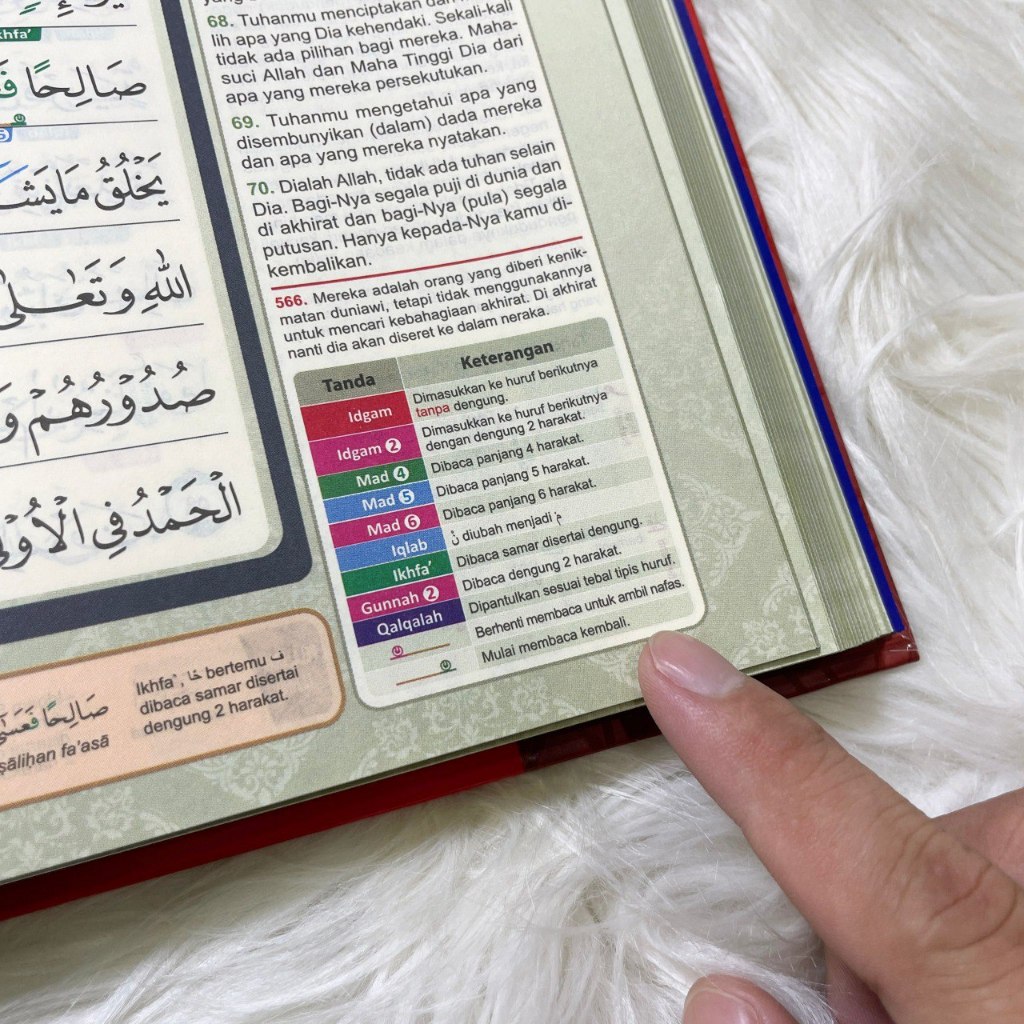 khfa’
صَالِحًا
يَخْلُقُ مَا يَشَ
اللهِ وَتَعٰلٰى
صُدُوْرُهُمْ وَ
الْحَمْدُ فِى الْاُوْلٰى
68. Tuhanmu menciptakan dan
lih apa yang Dia kehendaki. Sekali-kali
tidak ada pilihan bagi mereka. Maha-
suci Allah dan Maha Tinggi Dia dari
apa yang mereka persekutukan.
69. Tuhanmu mengetahui apa yang
disembunyikan (dalam) dada mereka
dan apa yang mereka nyatakan.
70. Dialah Allah, tidak ada tuhan selain
Dia. Bagi-Nya segala puji di dunia dan
di akhirat dan bagi-Nya (pula) segala
putusan. Hanya kepada-Nya kamu di-
kembalikan.
566. Mereka adalah orang yang diberi kenik-
matan duniawi, tetapi tidak menggunakannya
untuk mencari kebahagiaan akhirat. Di akhirat
nanti dia akan diseret ke dalam neraka.
Tanda Keterangan
Idgam Dimasukkan ke huruf berikutnya
tanpa dengung.
Idgam 2 Dimasukkan ke huruf berikutnya
dengan dengung 2 harakat.
Mad 4 Dibaca panjang 4 harakat.
Mad 5 Dibaca panjang 5 harakat.
Mad 6 Dibaca panjang 6 harakat.
Iqlab نْ diubah menjadi مْ
Ikhfa’ Dibaca samar disertai dengung.
Gunnah 2 Dibaca dengung 2 harakat.
Qalqalah Dipantulkan sesuai tebal tipis huruf.
Berhenti membaca untuk ambil nafas.
Mulai membaca kembali.
صَالِحًا فَعَسٰٓى
ṣāliḥan fa’asā
Ikhfa’, حًا bertemu ف
dibaca samar disertai
dengung 2 harakat.